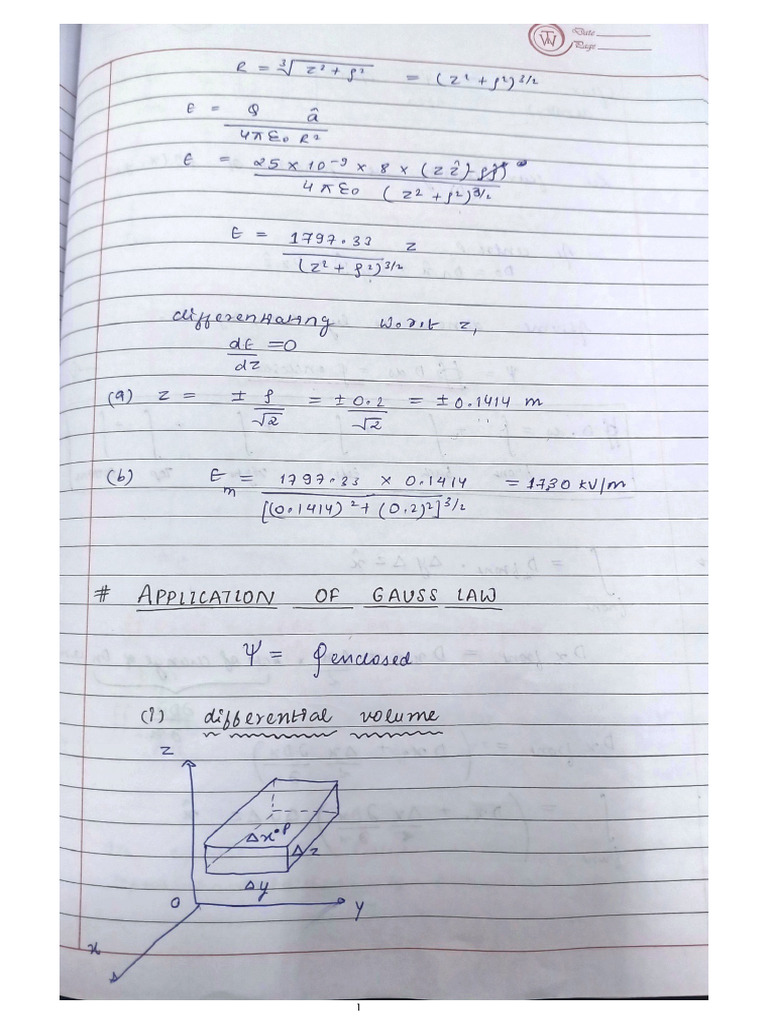 TW Date
Page
R = ³√z² + ρ² = (z² + ρ²)^3/2
E = Q â / 4πε₀ R²
E = 25 × 10⁻⁹ × 8 × (z ẑ - ρρ̂) / 4πε₀ (z² + ρ²)^3/2
E = 1797.33 z / (z² + ρ²)^3/2
differentiating w.r.t z,
dE/dz = 0
(a) z = ± ρ/√2 = ± 0.2/√2 = ± 0.1414 m
(b) Em = 1797.33 × 0.1414 / [(0.1414)² + (0.2)²]^3/2 = 1730 kV/m
# APPLICATION OF GAUSS LAW
Ψ = Qenclosed
(i) differential volume
z
Δx P
Δz
Δy
O
y
x
1